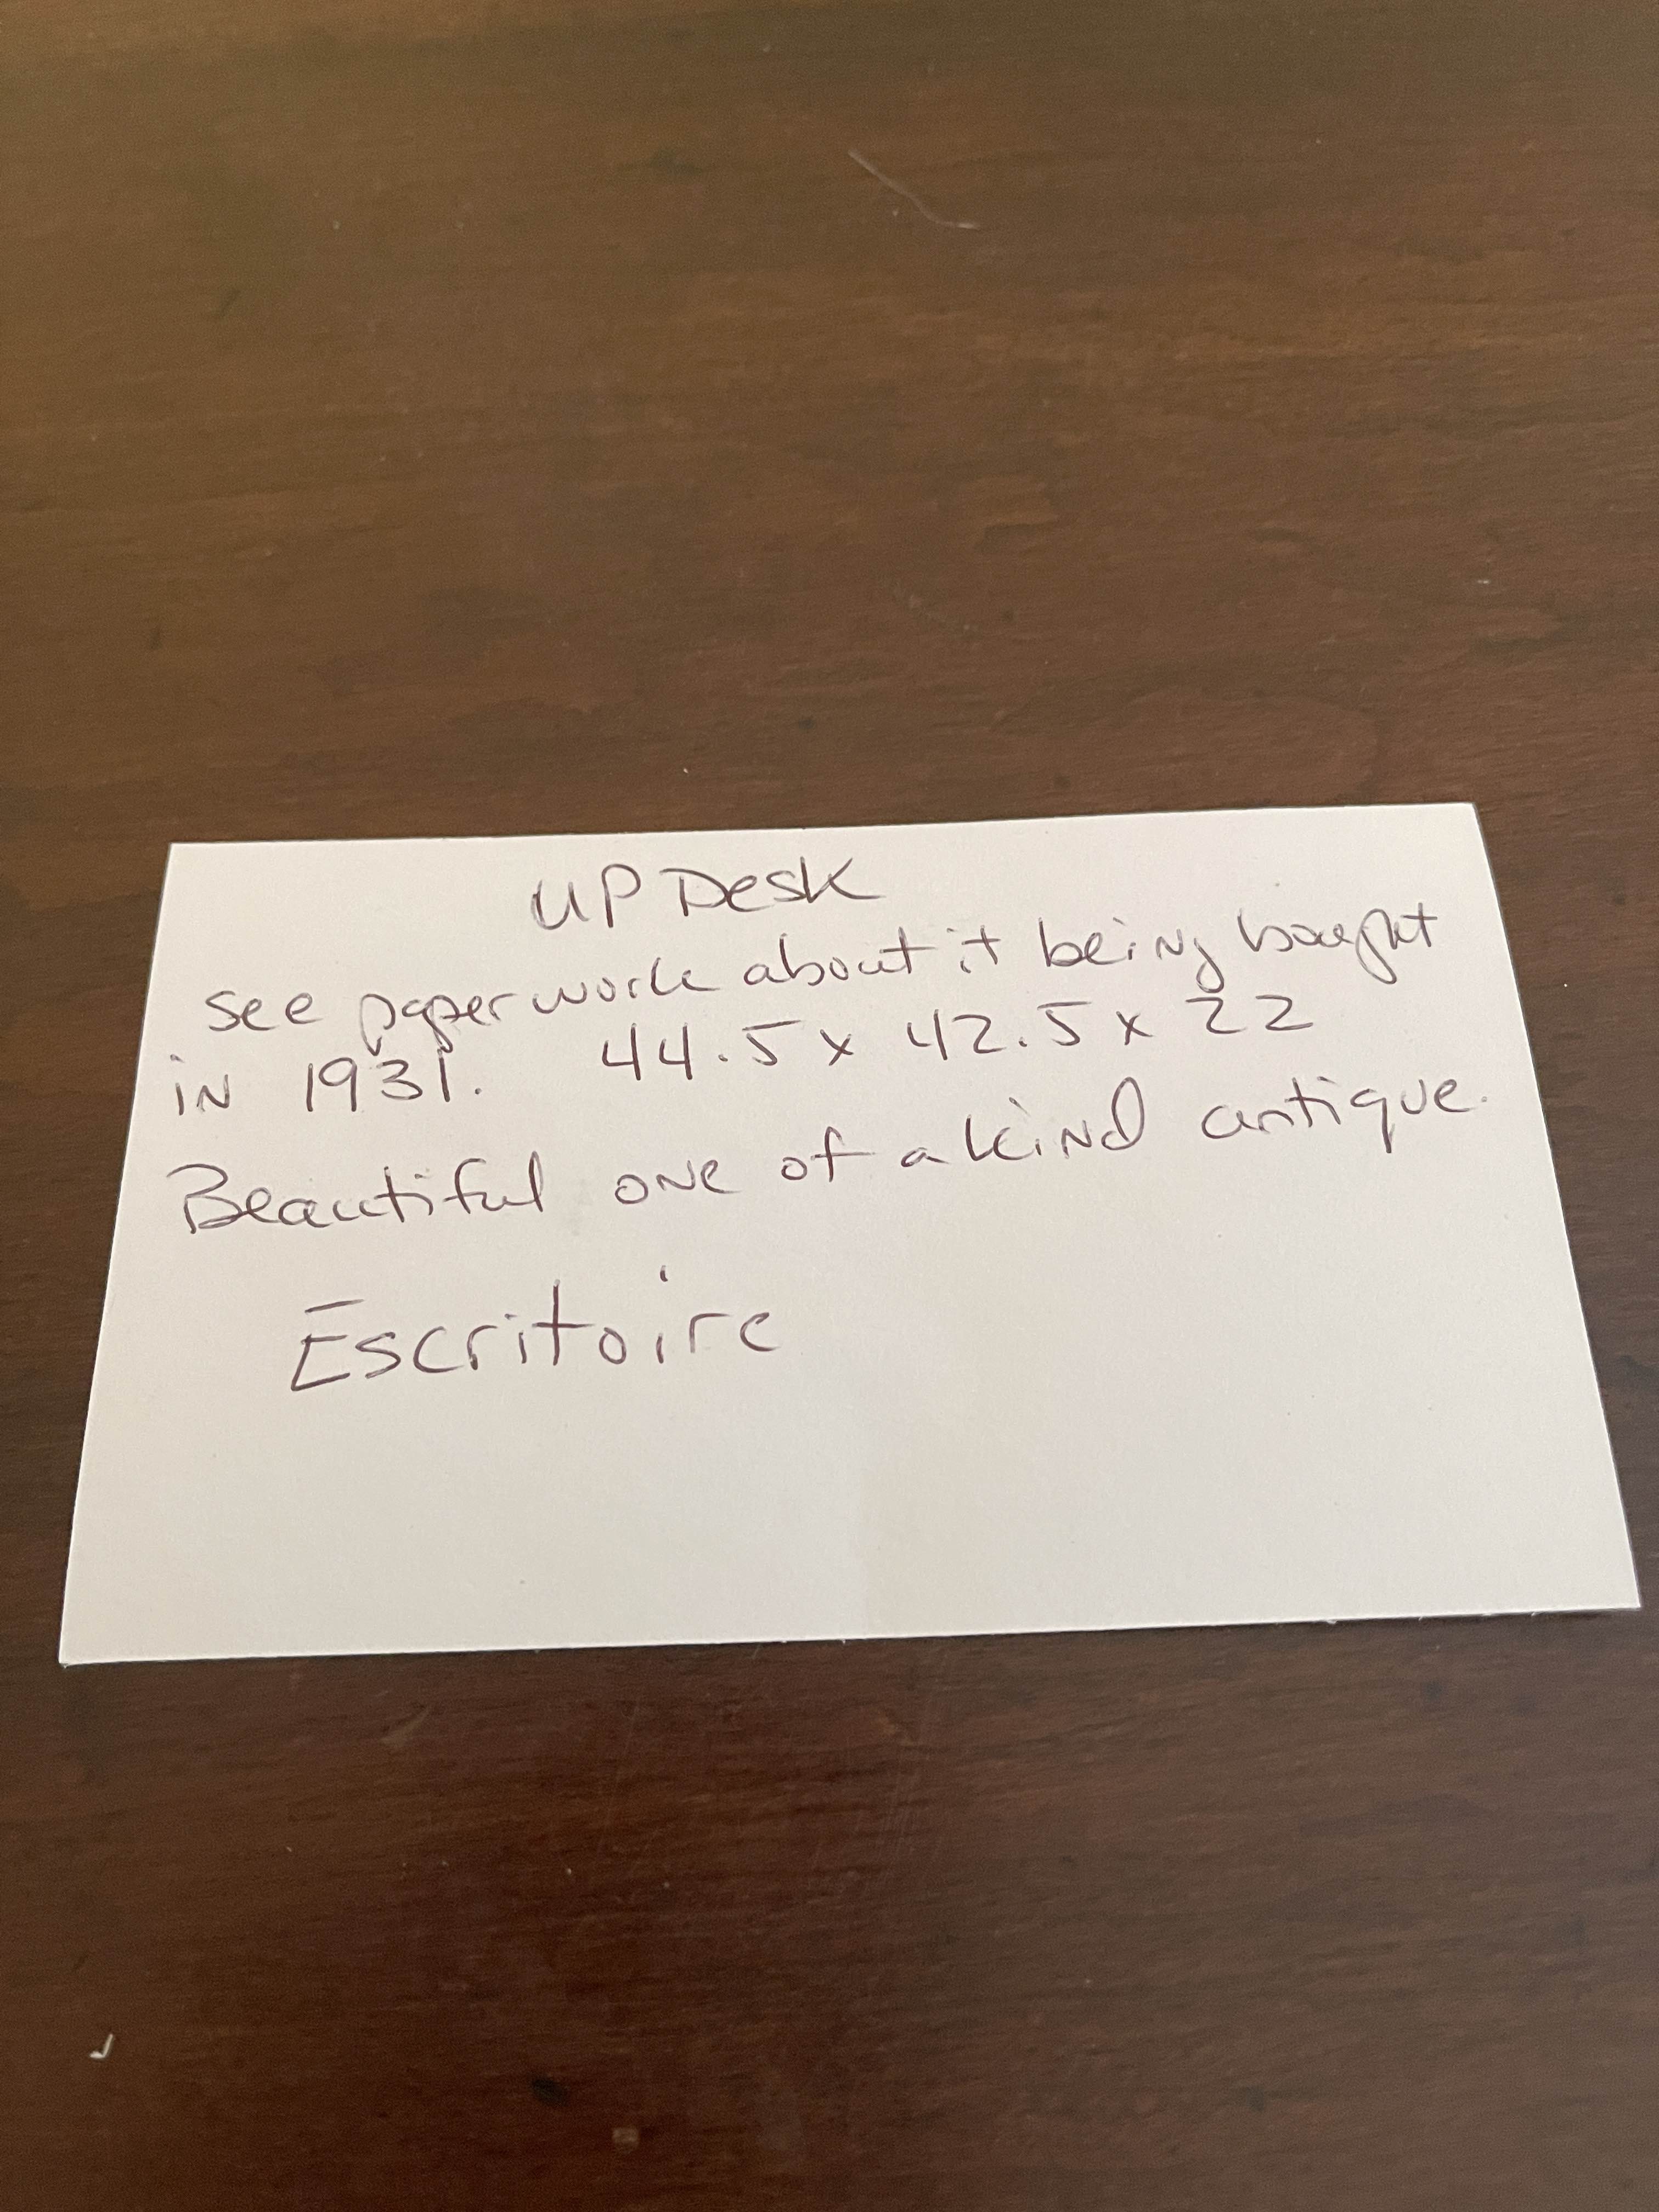 UP Desk
see paperwork about it being bought
in 1931. 44.5 x 42.5 x 22
Beautiful one of a kind antique.
Escritoire